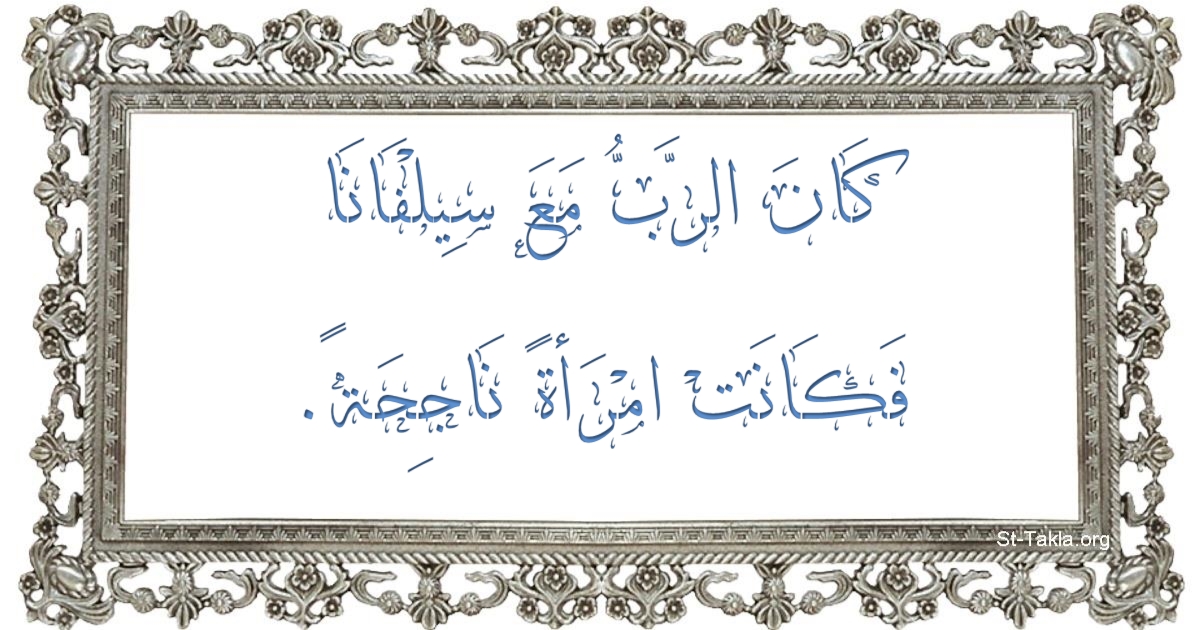 كَانَ الرَّبُّ مَعَ سِيلْفَانَا
فَكَانَتْ امْرَأةً نَاجِحَةً.
St-Takla.org